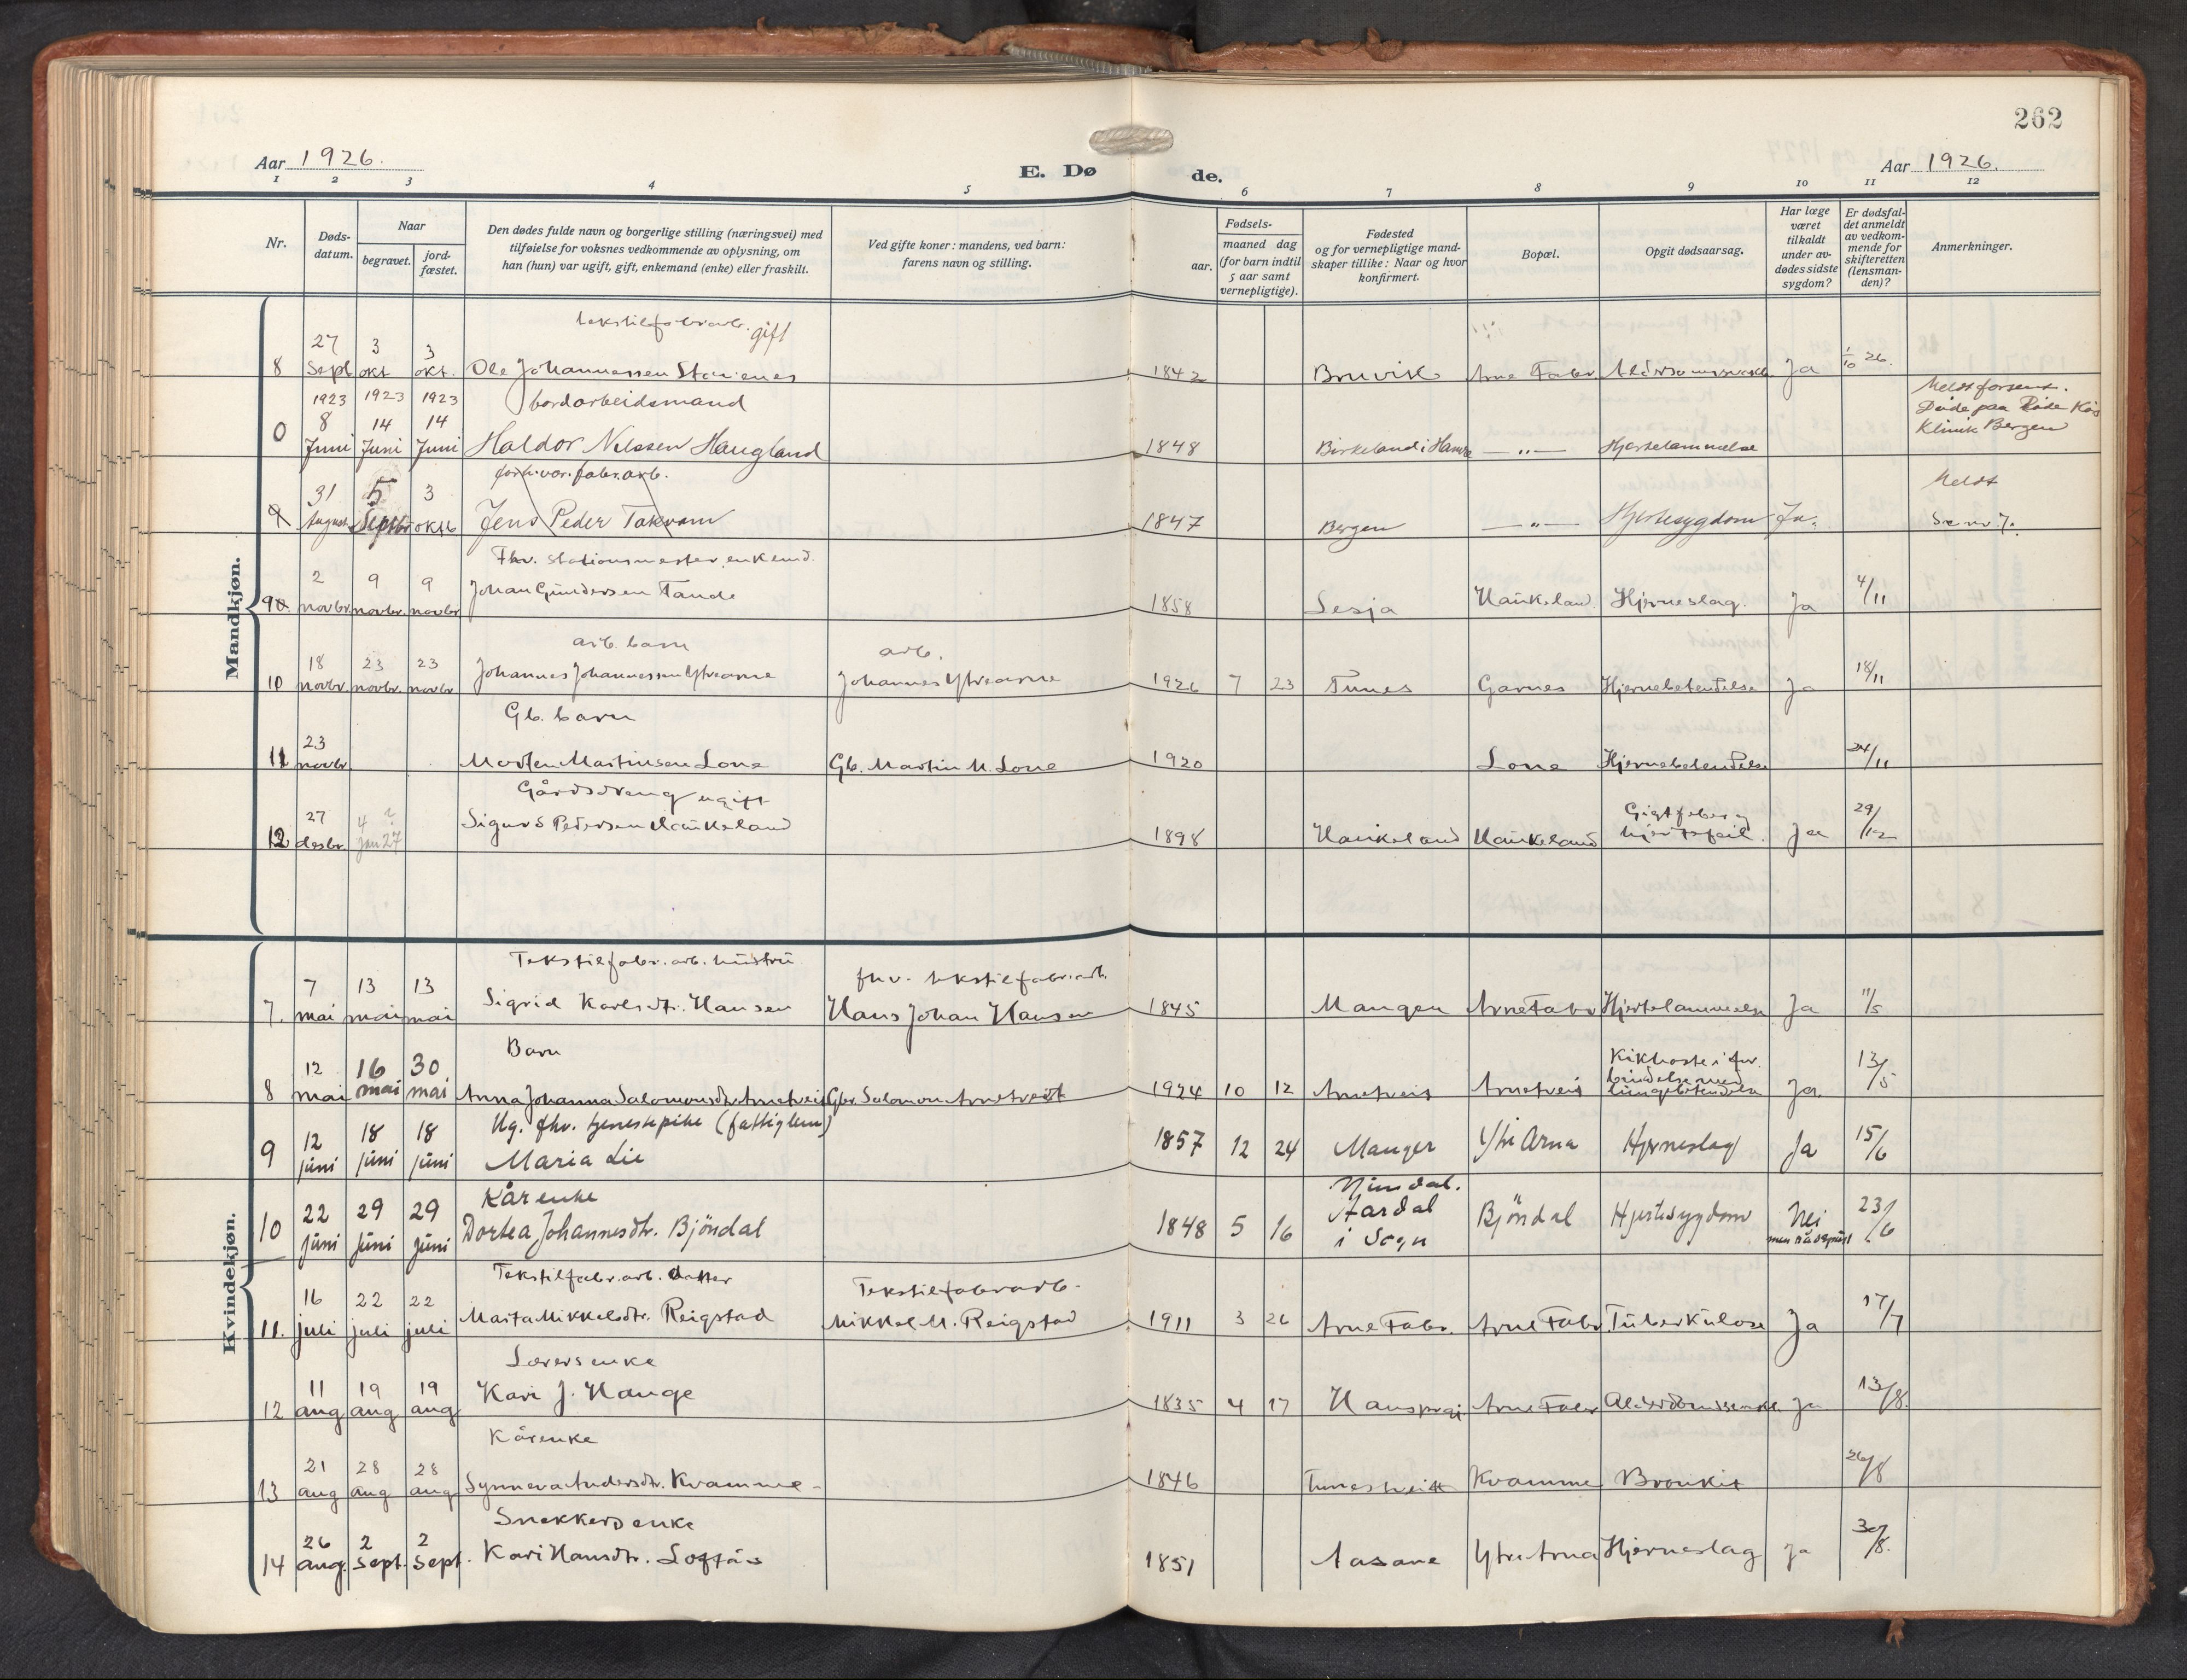 262
Aar 1926.
E. Dø
de.
Aar 1926.
1 2 3 4 5 6 7 8 9 10 11 12
Nr.
Døds-
datum.
Naar
begravet.
jord-
fæstet.
Den dødes fulde navn og borgerlige stilling (næringsvei) med
tilføielse for voksnes vedkommende av oplysning, om
han (hun) var ugift, gift, enkemand (enke) eller fraskilt.
Ved gifte koner: mandens, ved barn:
farens navn og stilling.
Fødsels-
aar.
maaned dag
(for barn indtil
5 aar samt
vernepligtige).
Fødested
og for vernepligtige mand-
skaper tillike: Naar og hvor
konfirmert.
Bopæl.
Opgit dødsaarsag.
Har læge
været
tilkaldt
under av-
dødes sidste
sygdom?
Er dødsfal-
det anmeldt
av vedkom-
mende for
skifteretten
(lensman-
den)?
Anmerkninger.
Mandkjøn.
tekstilfabrarb. gift
27 3 3
8 Sept okt okt. Ole Johannessen 1842 Bruvik Arne Fabr. Ja 1/10 26.
1923 1923 1923 Jordarbeidsmand
8 14 14
0 Juni Juni Juni Haldor Nilssen Haugland 1848 Birkeland i Hamre — " — Hjertelammelse
Meldt forsent.
Døde paa Røde Kors
Klinik Bergen
forh. var. fabr. arb.
31 5 3
9 August Septbr oktb Jens Peder Takvam 1847 Bergen — " — Hjertesygdom Ja.
Meldt
Se nr 7.
Fhv. stationsmester, enkemd.
2 9 9
90. novbr. novbr. novbr Johan Gundersen Tande 1858 Lesja Haukeland Hjerneslag. Ja 4/11
arb. barn arb.
18 23 23
10 novbr. novbr. novbr Johannes Johannessen Ytrearne Johannes Ytrearne 1926 7 23 Tunes Garnes Hjernebetendelse Ja 18/11
Gb. barn
23
11 novbr Morten Martinsen Lone Gb. Martin M. Lone 1920 Lone Hjernebetendelse 24/11
Gårdsdreng ugift
27 4 ?
12 desbr. jan 27 Sigurd Pedersen Haukeland 1898 Haukeland Haukeland Gigtfeber og
hjertefeil. Ja 29/12
Kvindekjøn.
Tekstilfabr. arb. hustru fhv. tekstilfabr. arb.
7 13 13
7. mai mai mai Sigrid Karlsdtr. Hansen Hans Johan Hansen 1845 Manger Arne Fabr Hjertelammelse Ja 11/5
Barn
12 16 30
8 mai mai mai Anna Johanna Salomonsdtr. Arnetveit Gbr. Salomon Arnetveit 1924 10 12 Arnetveit Arnetveit
Kikhoste i for-
bindelse med
lungebetendelse Ja. 13/5
Ug. fhv. tjenestepike (fattiglem)
12 18 18
9 juni juni juni Maria Lie 1857 12 24 Manger Ytre Arna Hjerneslag Ja 15/6
Kårenke
22 29 29
10 juni juni juni Dortea Johannesdtr. Bjöndal 1848 5 16
Aardal
i Sogn Bjöndal Hjertesygdom Nei 23/6
Tekstilfabr. arb. datter Tekstilfabrarb.
16 22 22
11. juli juli juli Marta Mikkelsdtr. Reigstad Mikkel M. Reigstad 1911 3 26 Arne Fabr. Arne Fabr. Tuberkulose Ja 17/7
Lærersenke
11 19 19
12 aug aug aug Kari J. Hauge 1835 4 17 Hausprgj Arne Fabr Ja 13/8.
Kårenke
21 28 28
13 aug aug aug Synneva Andersdtr. Kvamme 1846 Tunestveit Kvamme Bronkit 26/8
Snekkers enke
26 2 2
14 aug. Sept. Sept. Kari Hansdtr. Loftås 1851 Aasane Ytre Arna Hjerneslag Ja 30/8.